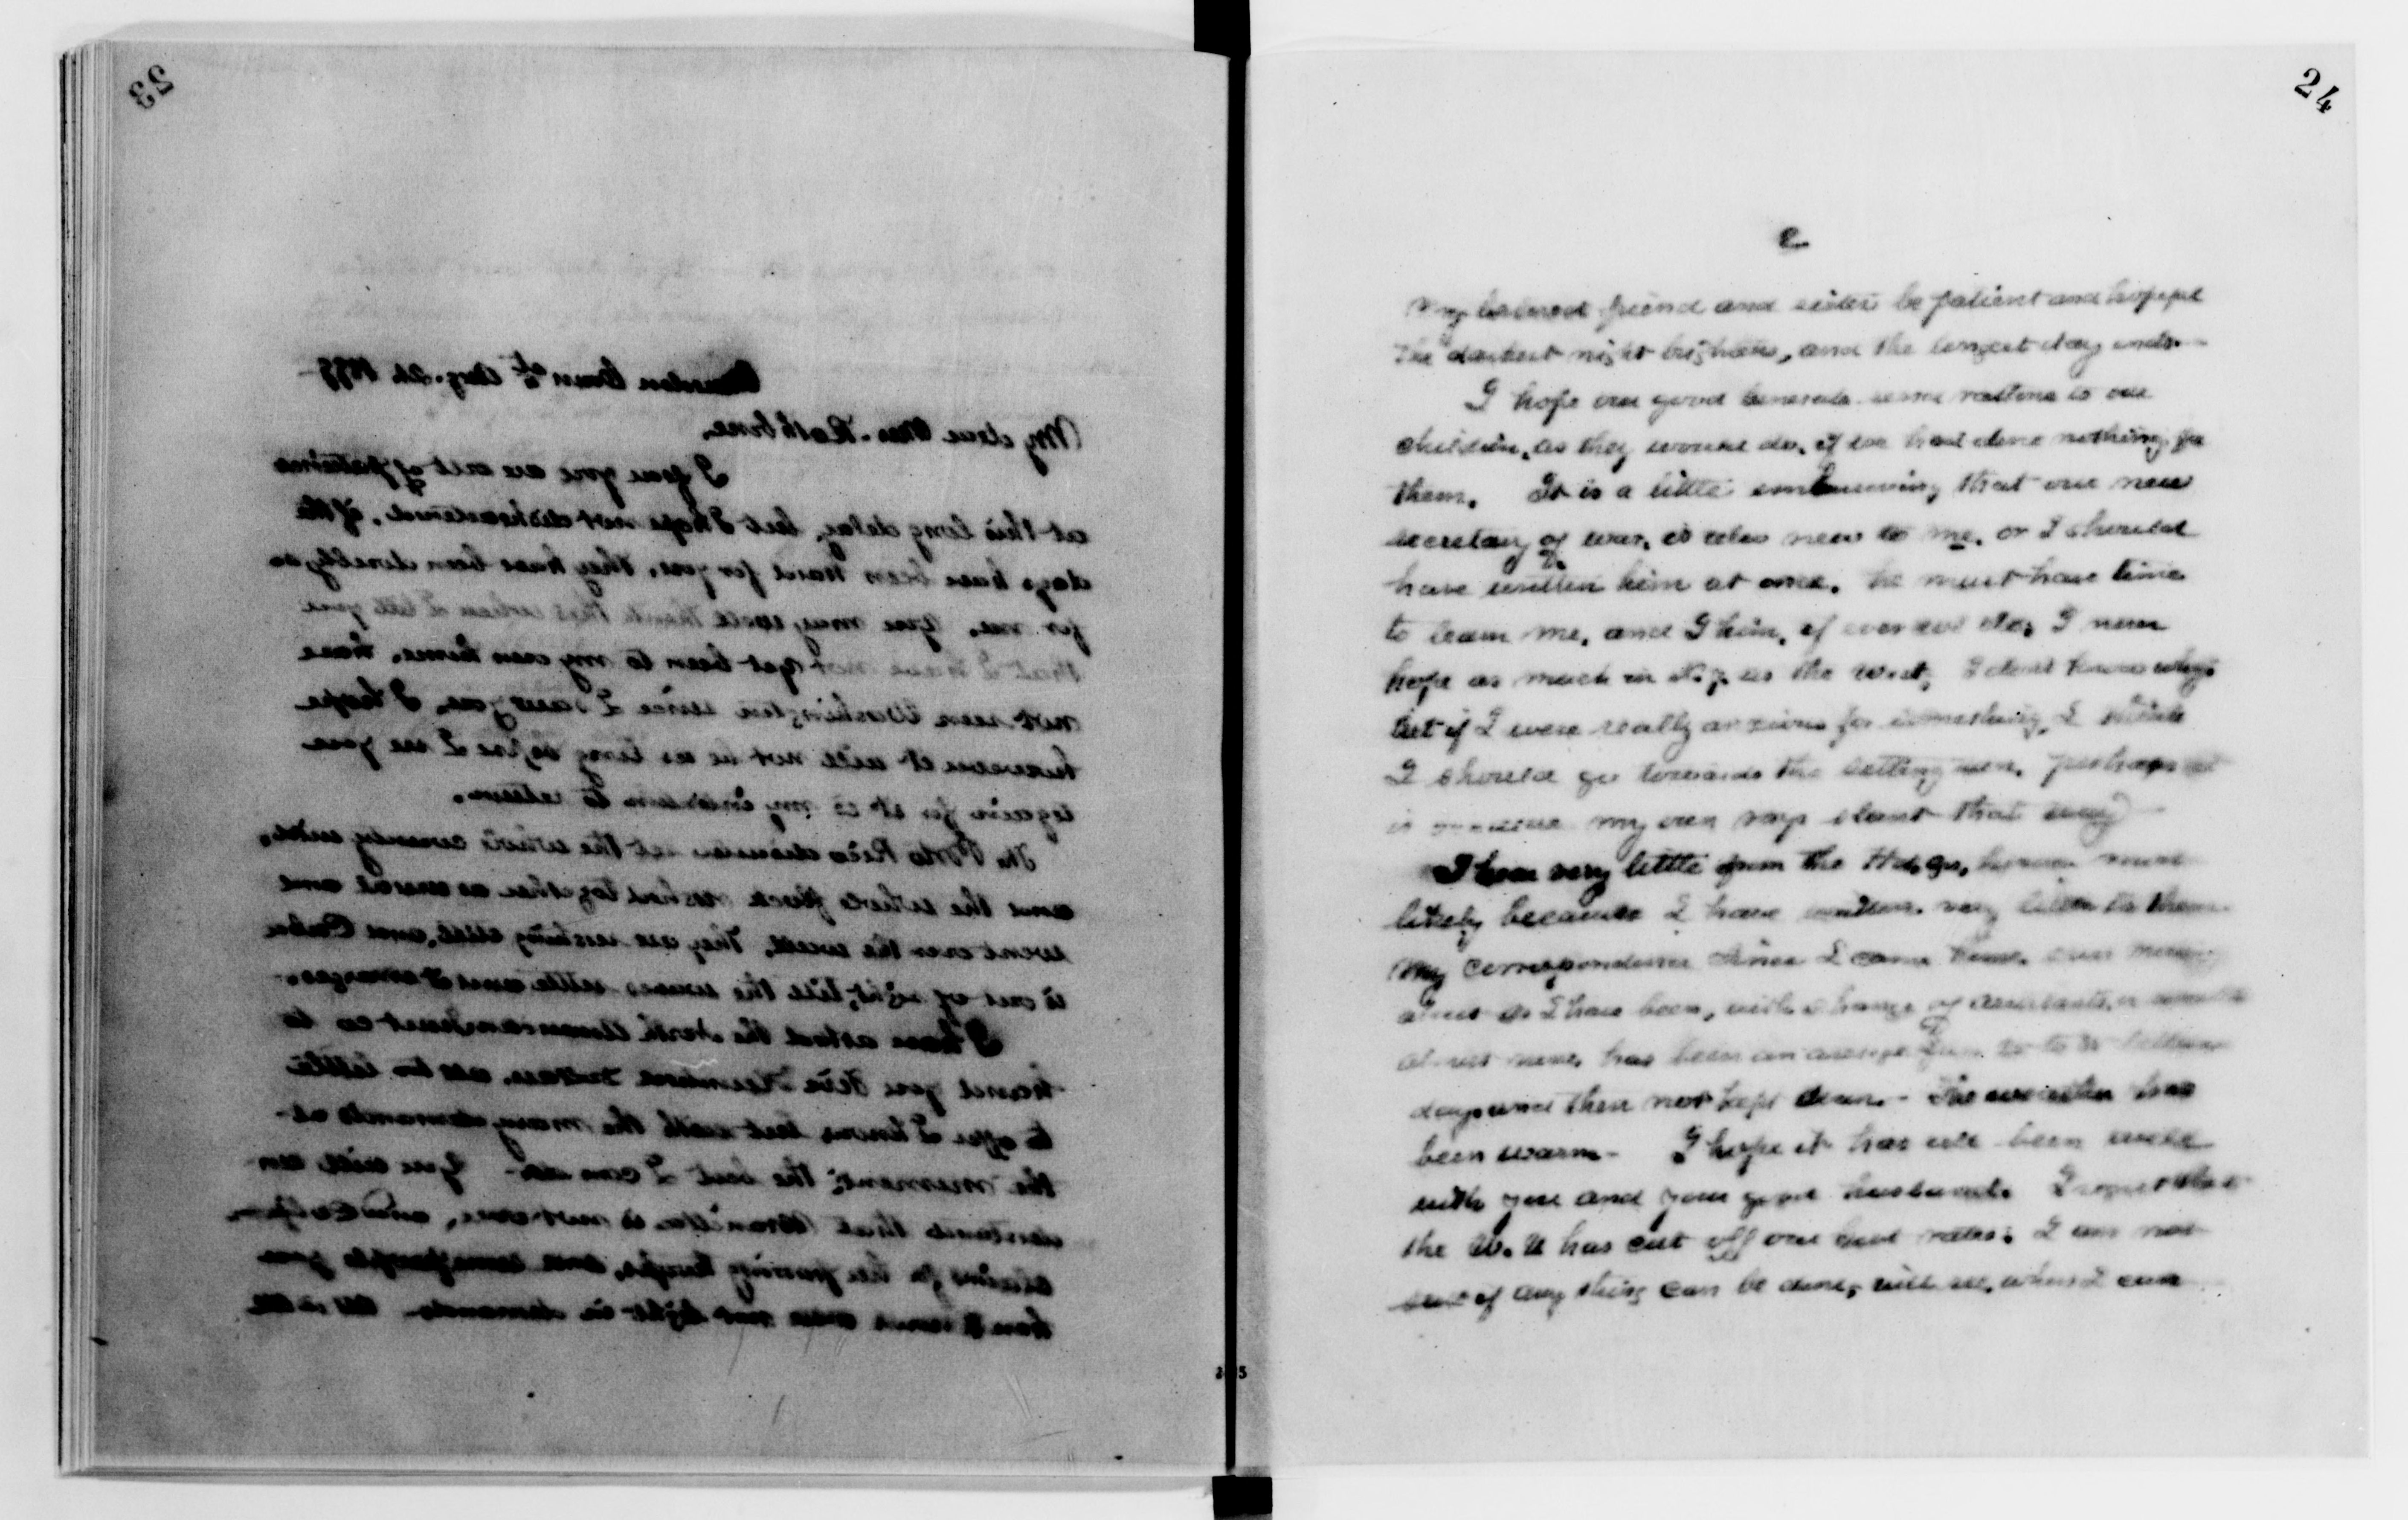 23
Aug. 24 1899
My dear Mrs. Rathbone,
I fear you are out of patience
at this long delay, but I hope not disheartened, if the
days have been hard for you, they have been doubly so
for me. You may well think this when I tell you
that I have not yet been to my own home, have
not seen Washington since I saw you, I hope
however it will not be as long before I see you
again for it is my intention to return.
The Porto Rico disaster set the whole country wild,
and the whole force rushed together as usual and
went over the wall. They are rushing still, and Cuba
is out of sight, till the waves settle and
I have asked the North American Trust Co to
hand you Five Hundred Dollars, all too little
to offer I know but with the many demands at
the moment; the best I can do. You will un-
derstand that is not over, and
for her passing troops, and some people you
have and not light in demands
24
2
My beloved friend and sister be patient and hopeful
the darkest night brightens, and the longest day ends.
I hope our good Generals seem rational to our
children, as they would do, if we had done nothing for
them. It is a little embarrassing that our new
secretary of war, is also new to me, or I should
have written him at once. He must have time
to learn me, and I him, if ever we do; I now
hope as much in N.Y. as the West, I dont know why
but if I were really anxious for something, I think
I should go towards the setting sun, perhaps
is because my own rays slant that way
I hear very little from the Hdqrs, however most
likely because I have written very little to them.
My correspondence since I came home, even
alone as I have been, with a change of assistants, or
almost none, has been an average from to letters
days and then not kept down. - The weather has
been warm - I hope it has all been well
with you and your good husband. I regret that
the W. U has cut off our good rates; I am not
sure if any thing can be done, will see, when I can